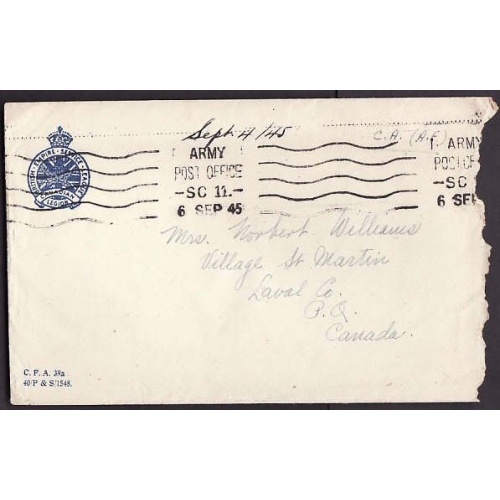 Sept 4/45
C.A. (A.F.)
ARMY
POST OFFICE
—SC 11.—
6 SEP 45
ARMY
POST OF
—SC
6 SEP
Mrs. Norbert Williams
Village St Martin
Laval Co.
P.Q.
Canada.
BRITISH EMPIRE SERVICE LEAGUE
C. F. A. 38a
40/P & S/1548.